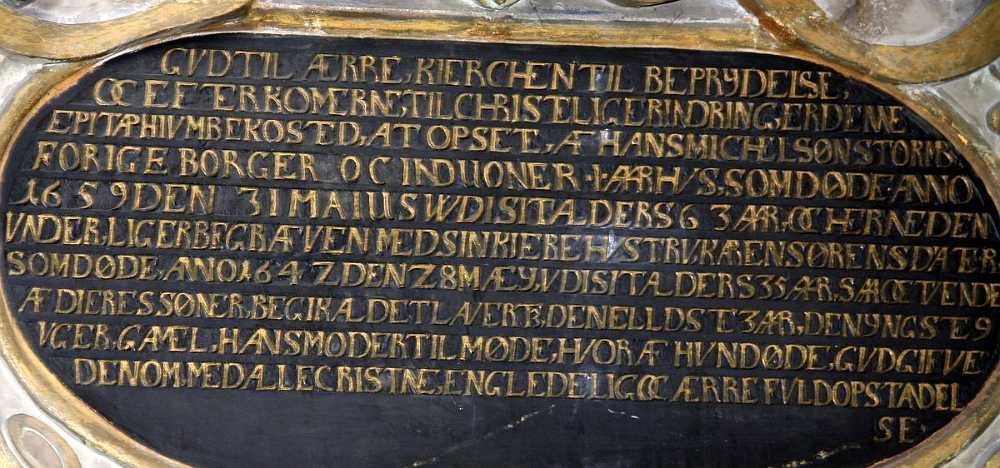 GUDTIL ÆRRE, KIERCHEN TIL BEPRYDELSE,
OC EFTERKOMERNE, TIL CHRISTELIG ERINDRING, ER DENE
EPITAPHIUM BEKOSTED, AT OPSET, AF HANS MICHELSØN STORM,
FORIGE BORGER OC INDUONER I AARHUS, SOM DØDE ANNO
1659 DEN 31 MAIUS UDI SIT ALDERS 63 AAR, OC HER NEDEN
UNDER, LIGER BEGRÆVEN MED SIN KIERE HUSTRU KAREN SØRENSDATER,
SOM DØDE, ANNO 1647 DEN 28 MÆY, UDI SIT ALDERS 35 AAR, SAA OC TUENDE
AF DIERES SØNER, BEGI KALDET LAVERTZ, DEN ELLDSTE 3 AAR, DEN YNGSTE 9
UGER, GAMEL, HANS MODER TIL MØDE, HUORAF HUN DØDE, GUD GIFUE
DENOM MED ALLE CRISTNE, EN GLEDELIG OC ÆRREFULD OPSTADEL
SE,